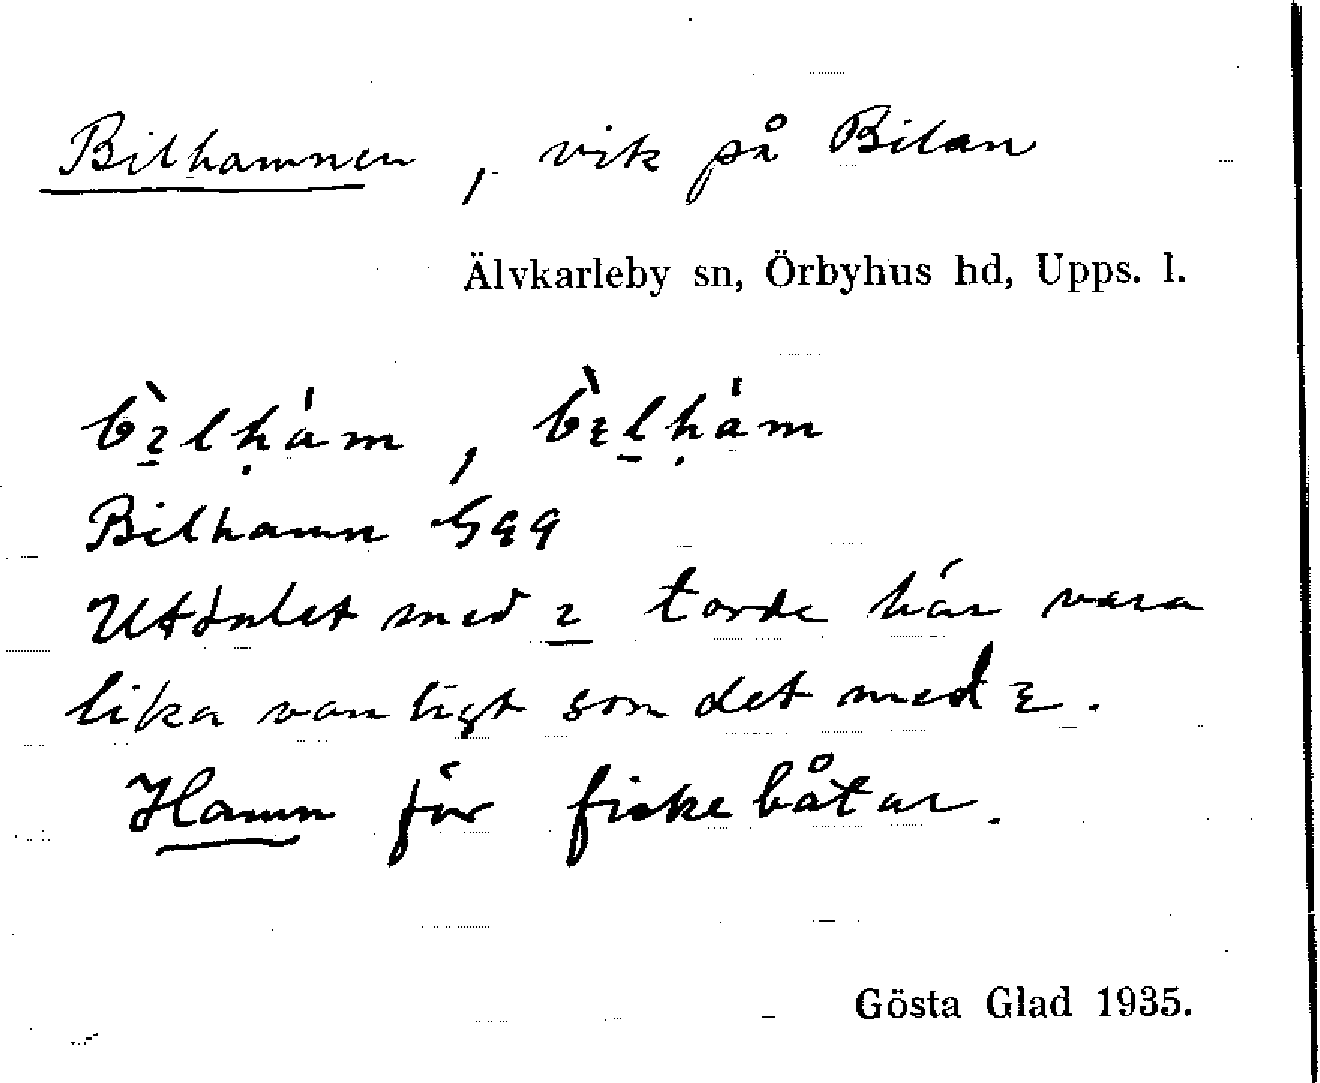 Bilhamnen, vik på Bilan
Älvkarleby sn, Örbyhus hd, Upps. l.
Bilhamn
Uttalet med ɛ torde här vara
lika vanligt som det med
Hamn för fiskebåtar.
Gösta Glad 1935.